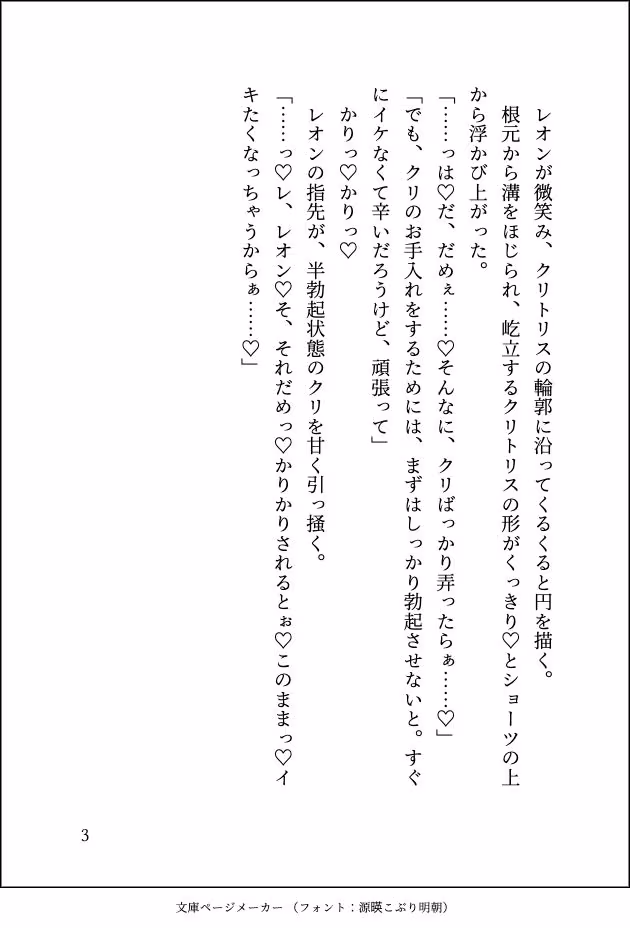 レオンが微笑み、クリトリスの輪郭に沿ってくるくると円を描く。
根元から溝をほじられ、屹立するクリトリスの形がくっきり♡とショーツの上
から浮かび上がった。
「……っは♡だ、だめぇ……♡そんなに、クリばっかり弄ったらぁ……♡」
「でも、クリのお手入れをするためには、まずはしっかり勃起させないと。すぐ
にイケなくて辛いだろうけど、頑張って」
かりっ♡かりっ♡
レオンの指先が、半勃起状態のクリを甘く引っ掻く。
「……っ♡レ、レオン♡そ、それだめっ♡かりかりされるとぉ♡このままっ♡イ
キたくなっちゃうからぁ……♡」
3
文庫ページメーカー（フォント：源暎こぶり明朝）